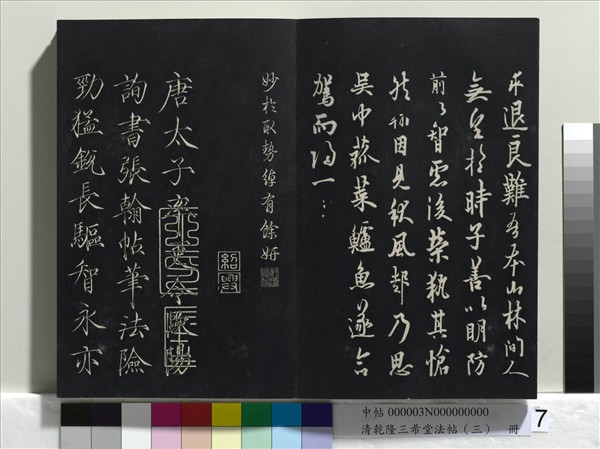 求退良難吾本山林間人
無望於時子善以明防
前以智慮後榮執其愴
然翰因見秋風起乃思
吳中菰菜鱸魚遂命
駕而歸
妙於取勢綽有餘妍
紹興
唐太子率更令歐陽
詢書張翰帖筆法險
勁猛銳長驅智永亦
中帖 000003N000000000
清乾隆三希堂法帖（三） 冊
7